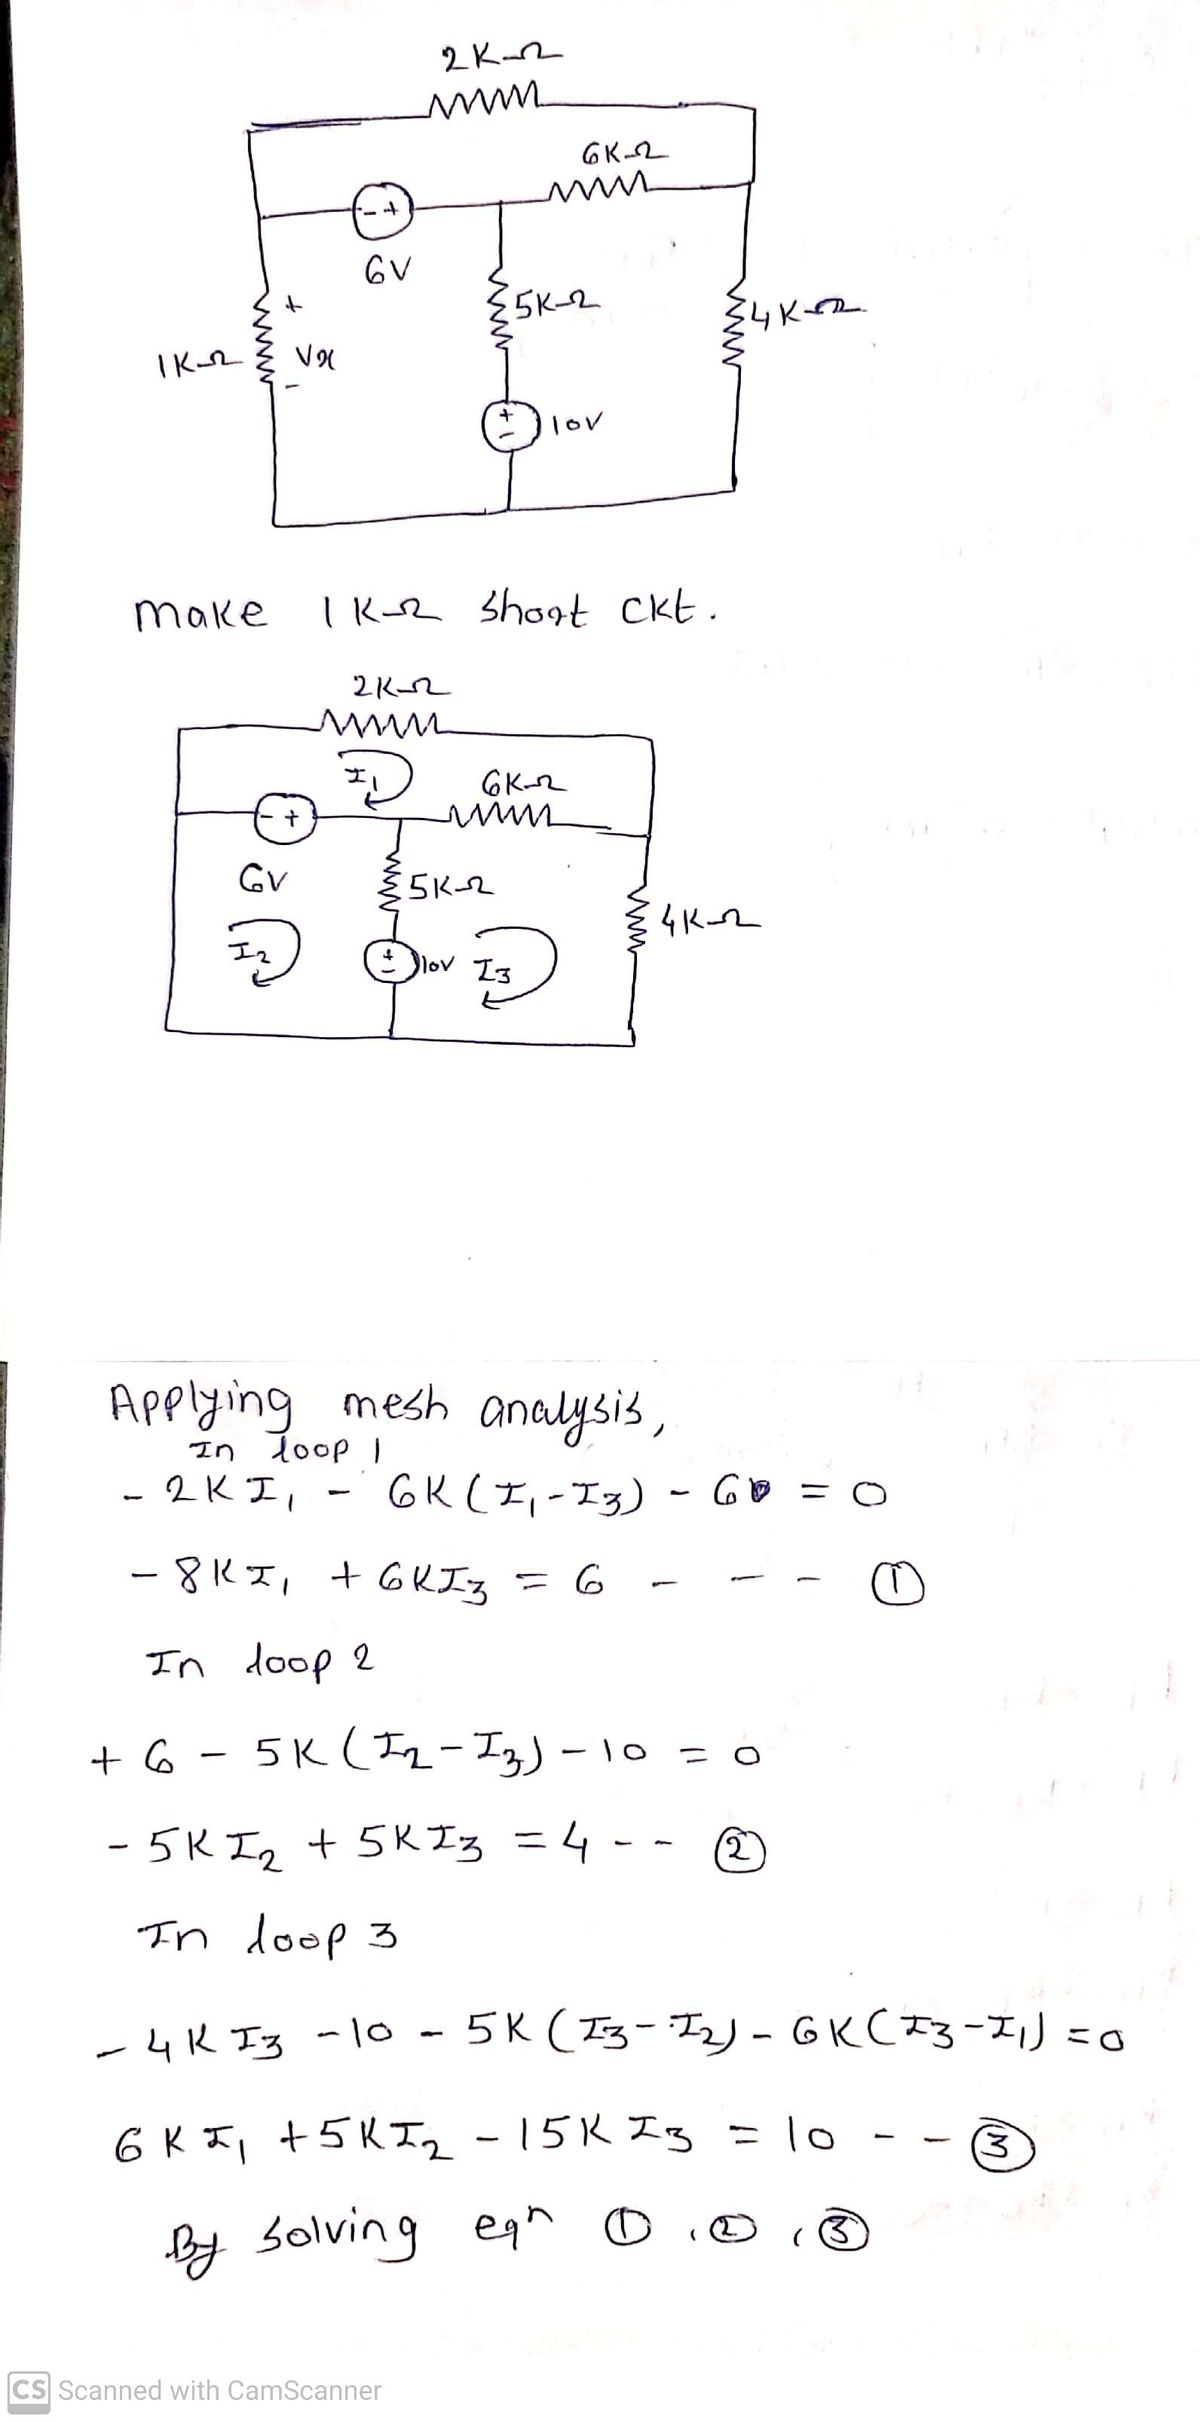 2K-Ω
6K-Ω
- +
6V
5K-Ω
4K-Ω
+
1K-Ω Vx
-
+
-
10V
make 1K-Ω short ckt.
2K-Ω
I1
6K-Ω
- +
6V
5K-Ω
4K-Ω
I2
+
-
10V I3
Applying mesh analysis,
In loop 1
- 2K I1 - 6K (I1-I3) - 6 = 0
- 8K I1 + 6K I3 = 6 - - - ①
In loop 2
+ 6 - 5K (I2-I3) - 10 = 0
- 5K I2 + 5K I3 = 4 - - ②
In loop 3
- 4K I3 - 10 - 5K (I3-I2) - 6K (I3-I1) = 0
6K I1 + 5K I2 - 15K I3 = 10 - - ③
By solving eqn ① , ② , ③
CS Scanned with CamScanner